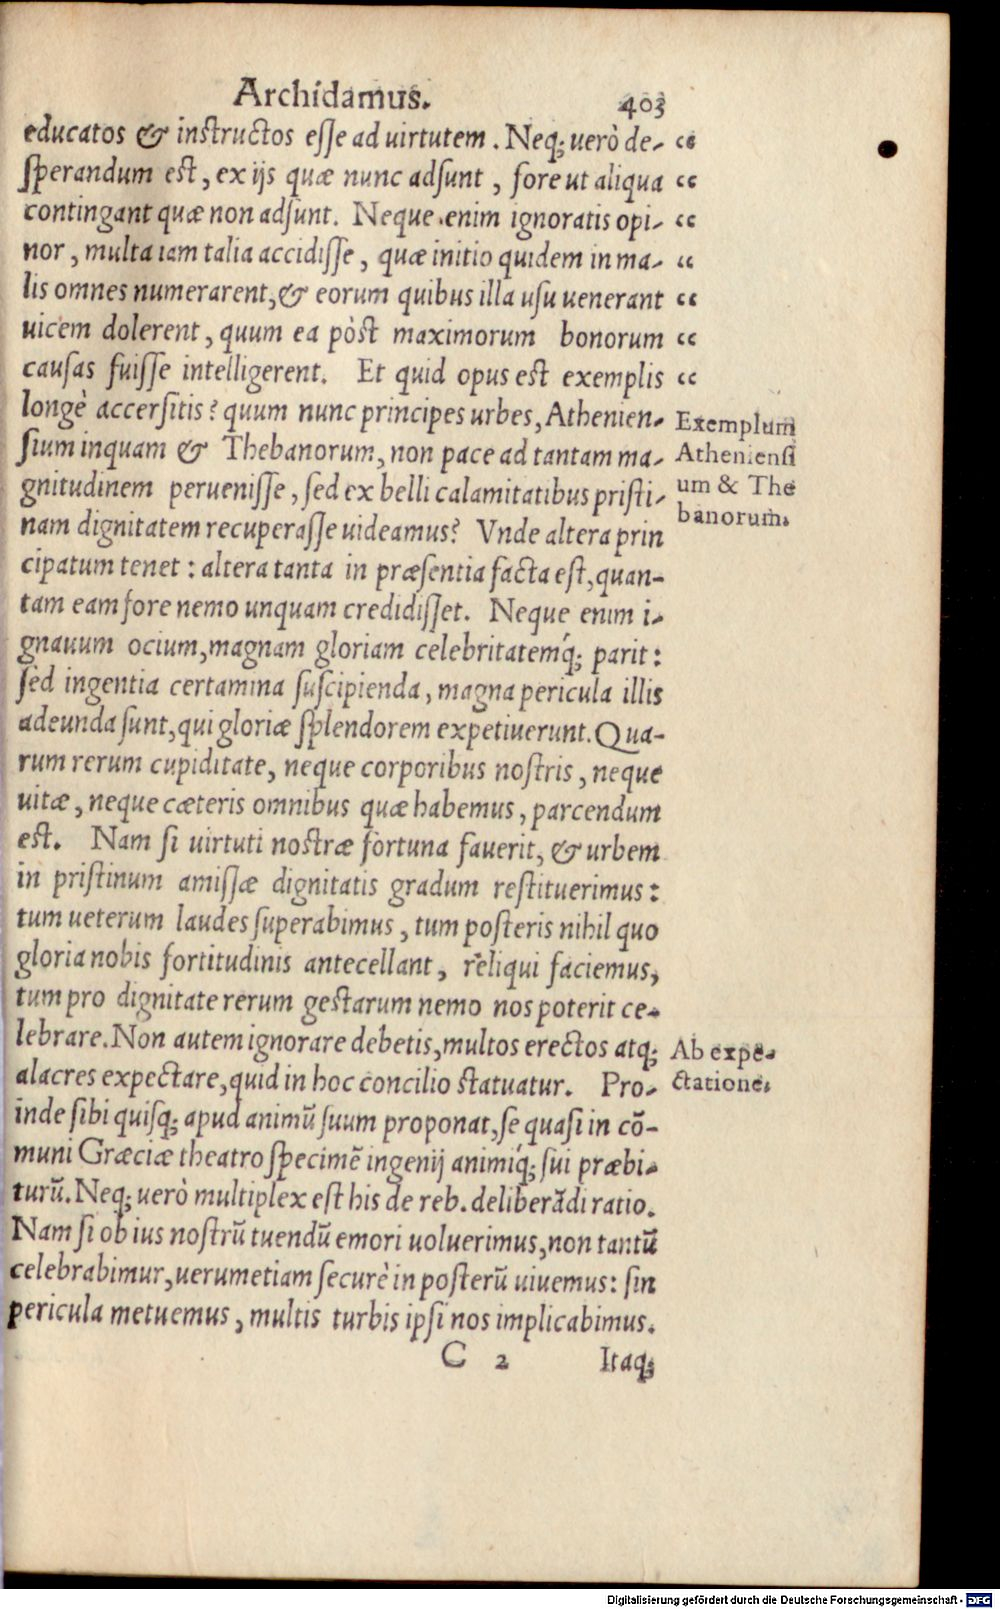 Archidamus. 403
educatos & instructos esse ad uirtutem. Neq; uerò de- “
sperandum est, ex ijs quæ nunc adsunt, fore ut aliqua “
contingant quæ non adsunt. Neque enim ignoratis opi- “
nor, multa iam talia accidisse, quæ initio quidem in ma- “
lis omnes numerarent, & eorum quibus illa usu uenerant “
uicem dolerent, quum ea pòst maximorum bonorum “
causas fuisse intelligerent. Et quid opus est exemplis “
longè accersitis? quum nunc principes urbes, Athenien-
sium inquam & Thebanorum, non pace ad tantam ma-
gnitudinem peruenisse, sed ex belli calamitatibus pristi-
nam dignitatem recuperasse uideamus? Vnde altera prin
cipatum tenet: altera tanta in præsentia facta est, quan-
tam eam fore nemo unquam credidisset. Neque enim i-
gnauum ocium, magnam gloriam celebritatemq́; parit:
sed ingentia certamina suscipienda, magna pericula illis
adeunda sunt, qui gloriæ splendorem expetiuerunt. Qua-
rum rerum cupiditate, neque corporibus nostris, neque
uitæ, neque cæteris omnibus quæ habemus, parcendum
est. Nam si uirtuti nostræ fortuna fauerit, & urbem
in pristinum amissæ dignitatis gradum restituerimus:
tum ueterum laudes superabimus, tum posteris nihil quo
gloria nobis fortitudinis antecellant, reliqui faciemus,
tum pro dignitate rerum gestarum nemo nos poterit ce-
lebrare. Non autem ignorare debetis, multos erectos atq;
alacres expectare, quid in hoc concilio statuatur. Pro-
inde sibi quisq; apud animũ suum proponat, se quasi in cõ-
muni Græciæ theatro specimẽ ingenij animiq́; sui præbi-
turũ. Neq; uerò multiplex est his de reb. deliberãdi ratio.
Nam si ob ius nostrũ tuendũ emori uoluerimus, non tantũ
celebrabimur, uerumetiam securè in posterũ uiuemus: sin
pericula metuemus, multis turbis ipsi nos implicabimus.
C 2 Itaq;
Exemplum
Atheniensi
um & The
banorum.
Ab expe-
ctatione.
Digitalisierung gefördert durch die Deutsche Forschungsgemeinschaft - DFG